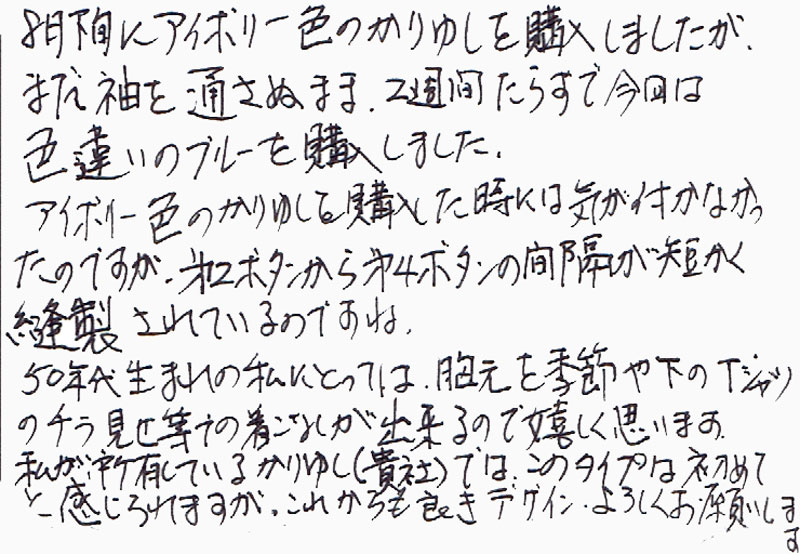 8月下旬にアイボリー色のかりゆしを購入しましたが、
まだ袖を通さぬまま、2週間たらずで今回は
色違いのブルーを購入しました。
アイボリー色のかりゆしを購入した時には気が付かなかっ
たのですが、第2ボタンから第4ボタンの間隔が短かく
縫製されているのですね。
50年代生まれの私にとっては、胸元を季節や下のTシャツ
のチラ見せ等の着こなしが出来るので嬉しく思います。
私が所有しているかりゆし(貴社)では、このタイプは初めて
と感じられますが、これからも良きデザイン、よろしくお願いしま
す